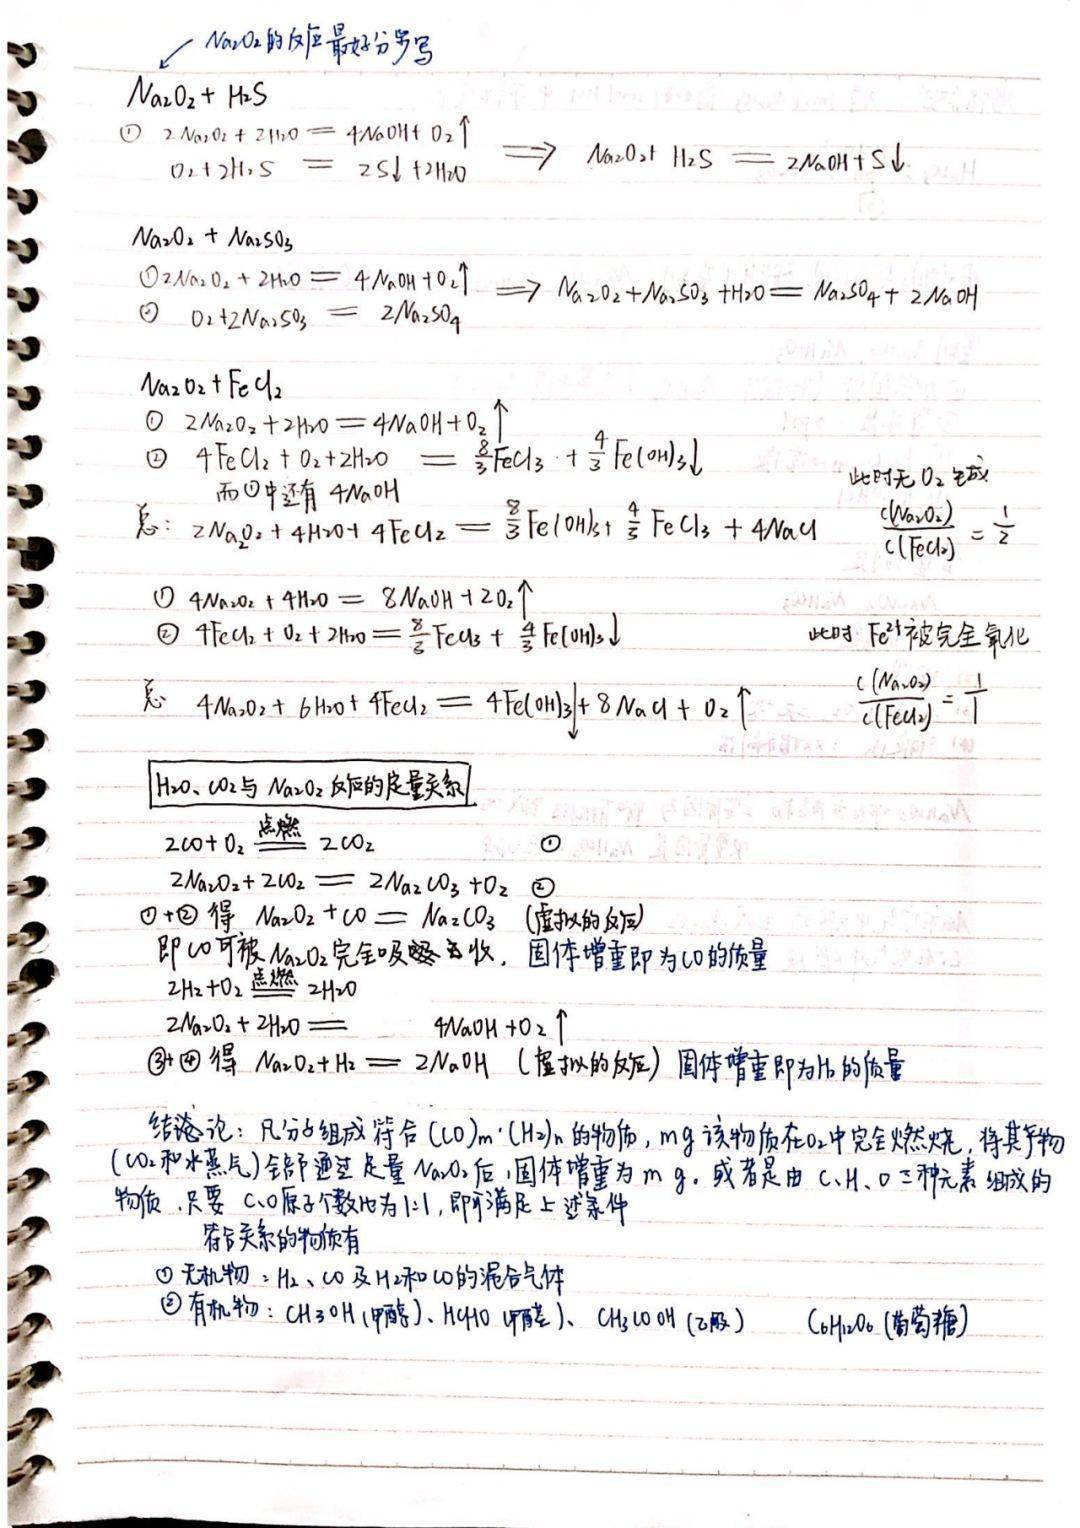 Na₂O₂的反应最好分步写
Na₂O₂ + H₂S
① 2Na₂O₂ + 2H₂O = 4NaOH + O₂↑
O₂ + 2H₂S = 2S↓ + 2H₂O ⟹ Na₂O₂ + H₂S = 2NaOH + S↓
Na₂O₂ + Na₂SO₃
① 2Na₂O₂ + 2H₂O = 4NaOH + O₂↑ ⟹ Na₂O₂ + Na₂SO₃ + H₂O = Na₂SO₄ + 2NaOH
② O₂ + 2Na₂SO₃ = 2Na₂SO₄
Na₂O₂ + FeCl₂
① 2Na₂O₂ + 2H₂O = 4NaOH + O₂↑
② 4FeCl₂ + O₂ + 2H₂O = 8/3 FeCl₃ + 4/3 Fe(OH)₃↓
而①中还有 4NaOH
此时无O₂生成
总: 2Na₂O₂ + 4H₂O + 4FeCl₂ = 8/3 Fe(OH)₃ + 4/3 FeCl₃ + 4NaCl c(Na₂O₂)/c(FeCl₂) = 1/2
① 4Na₂O₂ + 4H₂O = 8NaOH + 2O₂↑
② 4FeCl₂ + O₂ + 2H₂O = 8/3 FeCl₃ + 4/3 Fe(OH)₃↓
此时 Fe²⁺被完全氧化
总 4Na₂O₂ + 6H₂O + 4FeCl₂ = 4Fe(OH)₃↓ + 8NaCl + O₂↑ c(Na₂O₂)/c(FeCl₂) = 1/1
H₂O、CO₂与 Na₂O₂ 反应的定量关系
2CO + O₂ =点燃= 2CO₂ ①
2Na₂O₂ + 2CO₂ = 2Na₂CO₃ + O₂ ②
①+②得 Na₂O₂ + CO = Na₂CO₃ (虚拟的反应)
即CO可被Na₂O₂完全吸收, 固体增重即为CO的质量
2H₂ + O₂ =点燃= 2H₂O
2Na₂O₂ + 2H₂O = 4NaOH + O₂↑
③+④得 Na₂O₂ + H₂ = 2NaOH (虚拟的反应) 固体增重即为H₂的质量
结论: 凡分子组成符合(CO)m·(H₂)n的物质, mg该物质在O₂中完全燃烧, 将其产物
(CO₂和水蒸气)全部通过足量Na₂O₂后, 固体增重为 m g。或者是由 C、H、O三种元素组成的
物质, 只要 C、O原子个数比为1:1, 即可满足上述条件
符合关系的物质有
① 无机物: H₂、CO及H₂和CO的混合气体
② 有机物: CH₃OH(甲醇)、HCHO 甲醛)、CH₃COOH(乙酸) C₆H₁₂O₆(葡萄糖)